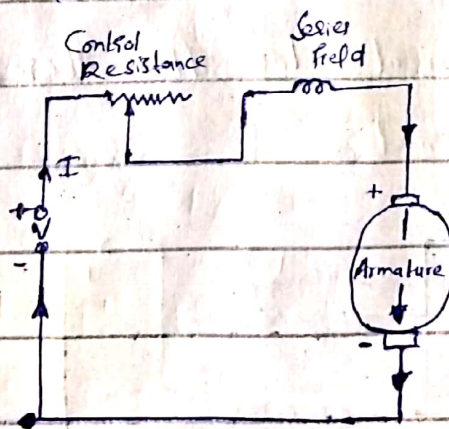 Control
Resistance
Series
Field
I
+
V
-
+
Armature
-